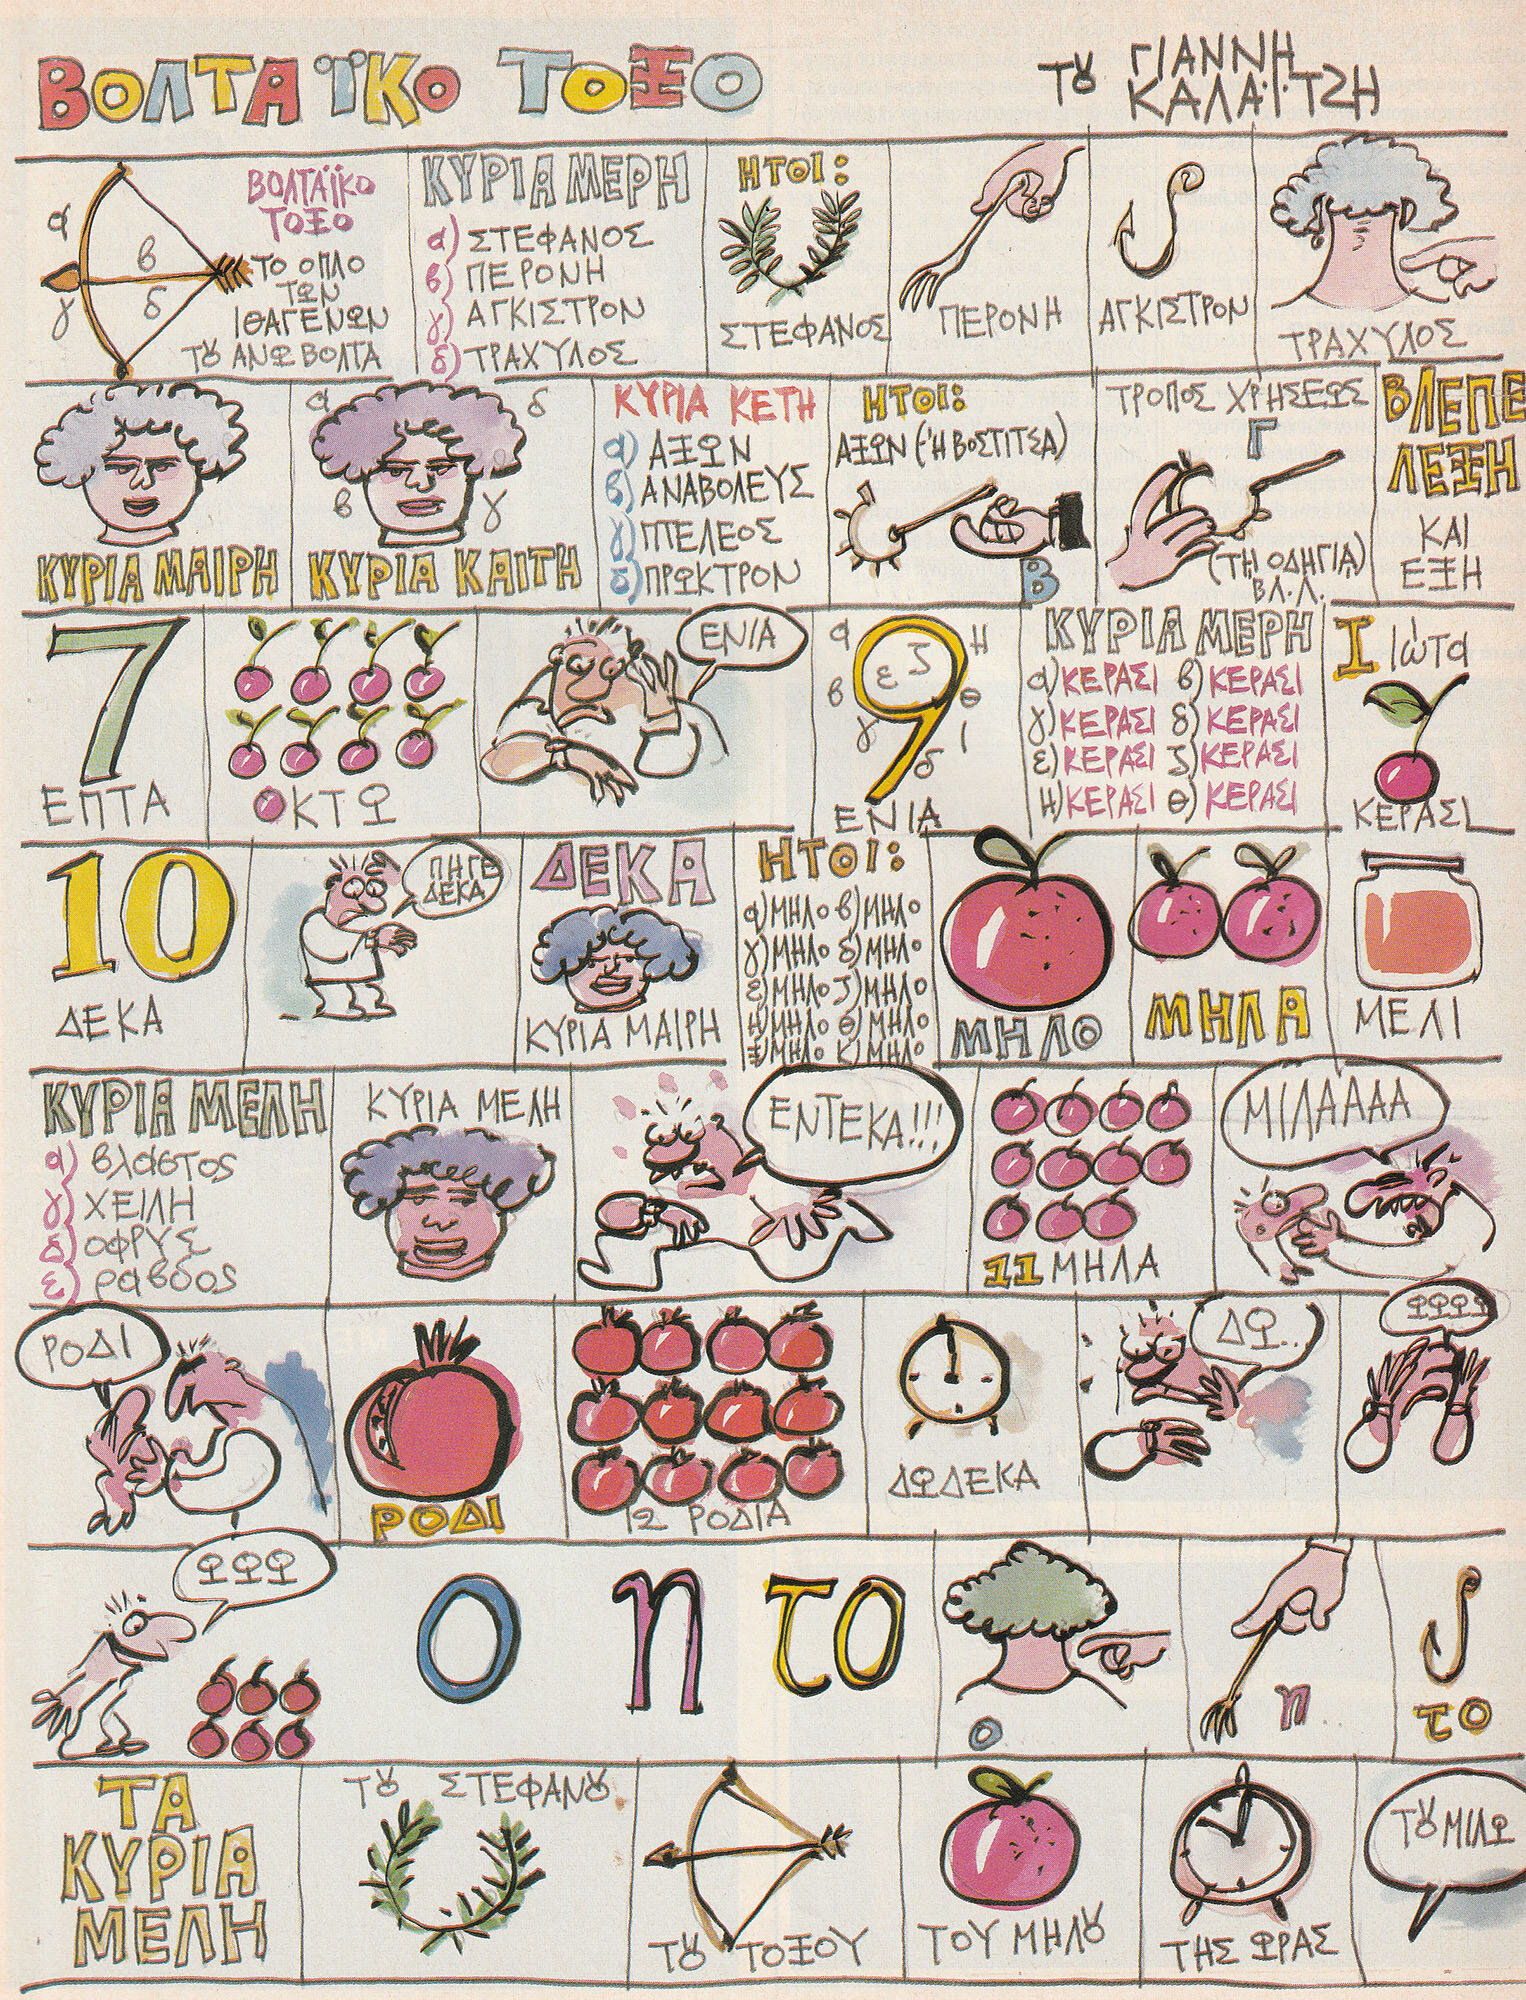 ΒΟΛΤΑΪΚΟ ΤΟΞΟ
ΤȢ ΓΙΑΝΝΗ
ΚΑΛΑΪΤΖΗ
α
β
γ
δ
ΒΟΛΤΑΪΚΟ
ΤΟΞΟ
ΤΟ ΟΠΛΟ
ΤΩΝ
ΙΘΑΓΕΝΩΝ
ΤȢ ΑΝΩ ΒΟΛΤΑ
ΚΥΡΙΑ ΜΕΡΗ
α) ΣΤΕΦΑΝΟΣ
β) ΠΕΡΟΝΗ
γ) ΑΓΚΙΣΤΡΟΝ
δ) ΤΡΑΧΥΛΟΣ
ΗΤΟΙ:
ΣΤΕΦΑΝΟΣ
ΠΕΡΟΝΗ
ΑΓΚΙΣΤΡΟΝ
ΤΡΑΧΥΛΟΣ
ΚΥΡΙΑ ΜΑΙΡΗ
α
δ
β
γ
ΚΥΡΙΑ ΚΑΙΤΗ
ΚΥΡΙΑ ΚΕΤΗ
α) ΑΞΩΝ
β) ΑΝΑΒΟΛΕΥΣ
γ) ΠΤΕΛΕΟΣ
δ) ΠΡΩΚΤΡΟΝ
ΗΤΟΙ:
ΑΞΩΝ (-Ή ΒΟΣΤΙΤΣΑ)
Β
ΤΡΟΠΟΣ ΧΡΗΣΕΩΣ
Γ
(ΤΗ ΟΔΗΓΙΑ)
ΒΛ.Λ.
ΒΛΕΠΕ
ΛΕΞΗ
ΚΑΙ
ΕΞΗ
7
ΕΠΤΑ
ΟΚΤΩ
ΕΝΙΑ
α
β
γ
δ
ε
ζ
9
Η
θ
Ι
ΕΝΙΑ
ΚΥΡΙΑ ΜΕΡΗ
α) ΚΕΡΑΣΙ β) ΚΕΡΑΣΙ
γ) ΚΕΡΑΣΙ δ) ΚΕΡΑΣΙ
ε) ΚΕΡΑΣΙ ζ) ΚΕΡΑΣΙ
Η) ΚΕΡΑΣΙ θ) ΚΕΡΑΣΙ
Ι Ιώτα
ΚΕΡΑΣΙ
10
ΔΕΚΑ
ΠΗΓΕ
ΔΕΚΑ
ΔΕΚΑ
ΚΥΡΙΑ ΜΑΙΡΗ
ΗΤΟΙ:
α) ΜΗΛΟ β) ΜΗΛΟ
γ) ΜΗΛΟ δ) ΜΗΛΟ
ε) ΜΗΛΟ ζ) ΜΗΛΟ
Η) ΜΗΛΟ θ) ΜΗΛΟ
ΜΗΛΟ Κ) ΜΗΛΟ
ΜΗΛΟ
ΜΗΛΑ
ΜΕΛΙ
ΚΥΡΙΑ ΜΕΛΗ
α) βλαστος
γ) ΧΕΙΛΗ
δ) ΟΦΡΥΣ
ε) ραβδος
ΚΥΡΙΑ ΜΕΛΗ
ΕΝΤΕΚΑ!!!
11 ΜΗΛΑ
ΜΙΛΑΑΑΑ
ΡΟΔΙ
ΡΟΔΙ
12 ΡΟΔΙΑ
ΔΩΔΕΚΑ
ΔΩ..
ΩΩΩΩ
ΩΩΩ
ο η το
ο
η
το
ΤΑ
ΚΥΡΙΑ
ΜΕΛΗ
ΤȢ ΣΤΕΦΑΝȢ
ΤȢ ΤΟΞΟΥ
ΤΟΥ ΜΗΛȢ
ΤΗΣ ΩΡΑΣ
ΤȢ ΜΙΛΩ